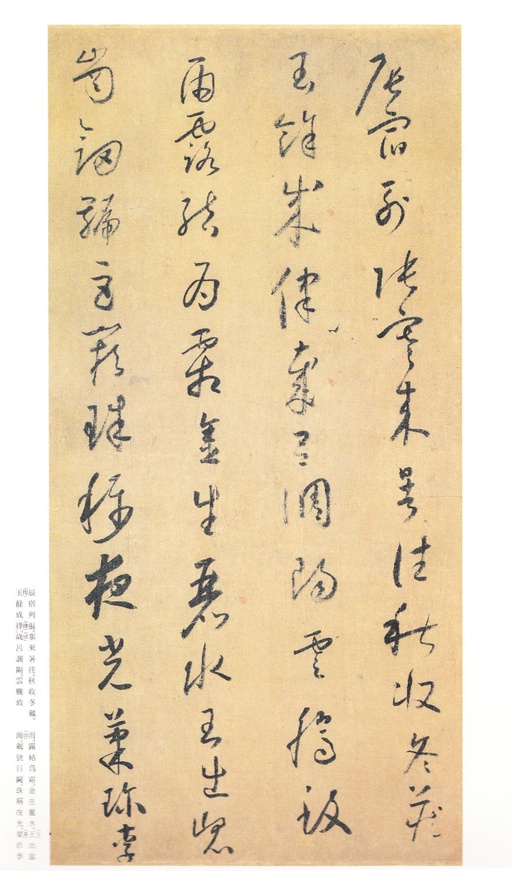 辰宿列張寒來暑往秋收冬藏
玉餘成律歲呂調陽雲騰致
雨露結為霜金生麗水玉出崑
崗劍號巨闕珠稱夜光菓珍李
辰宿列張寒來暑往秋收冬藏
玉餘成律歲呂調陽雲騰致
雨露結爲霜金生麗水玉出崑
崗劍號巨闕珠稱夜光菓珍李